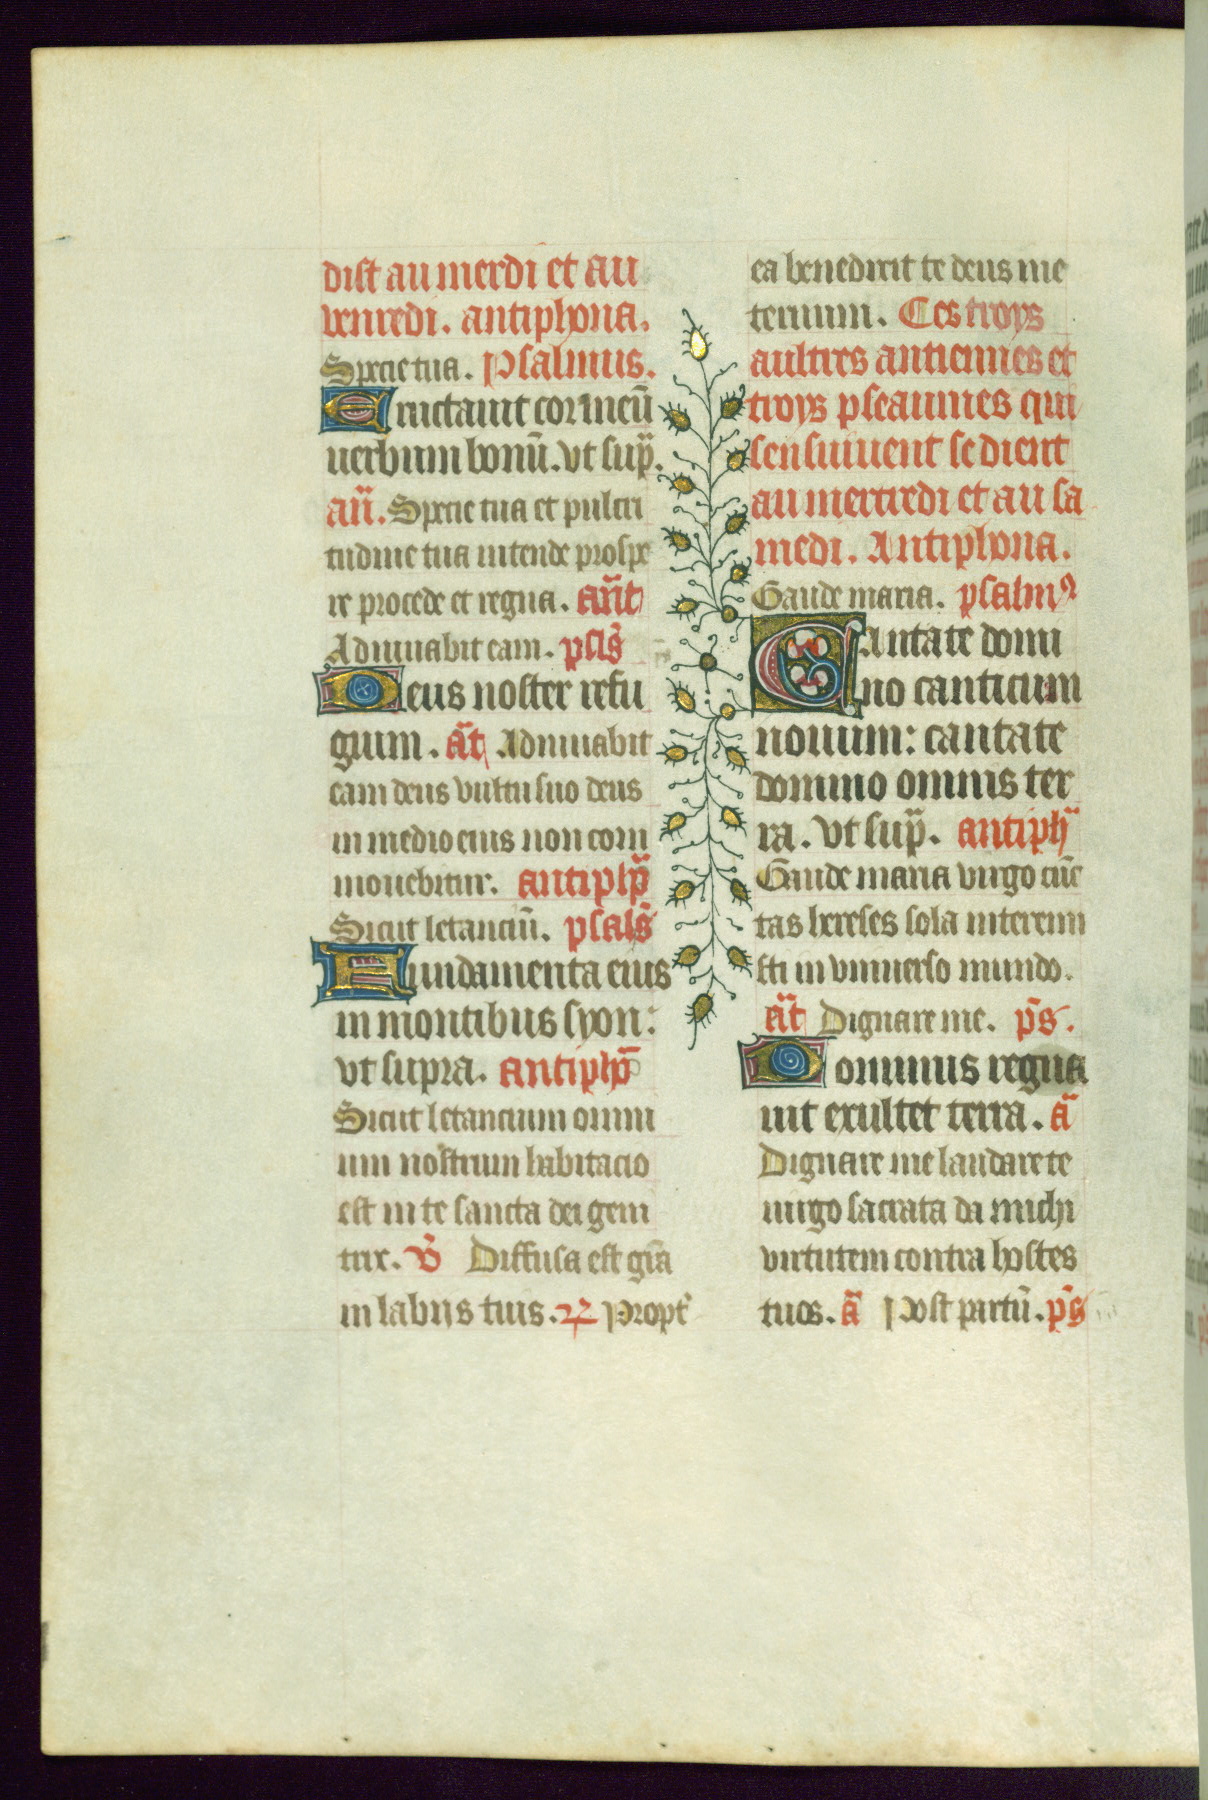 dist au merdi et au
venredi. antiphona.
Specie tua. Psalmus.
Eructauit cor meū
uerbum bonū. vt sup̄.
añ. Specie tua et pulcri
tudine tua intende prospe
re procede et regna. añt
Adiuuabit eam. psl̄s
Deus noster refu
gium. āt Adiuuabit
eam deus vultu suo deus
in medio eius non com
mouebitur. antiph̄
Sicut letanciū. psal̄s
Fundamenta eius
in montibus syon:
vt supra. antiph̄
Sicut letancium omni
um nostrum habitacio
est in te sancta dei geni
trix. v̄ Diffusa est grā
in labijs tuis. ꝶ Propt̄
ea benedixit te deus in e
ternum. Ces troys
aultres antiennes et
troys pseaumes qui
sensuiuent se dient
au mercredi et au sa
medi. Antiphona.
Gaude maria. psalmꝰ
Cantate domi
no canticum
nouum: cantate
domino omnis ter
ra. vt sup̄. antiph̄
Gaude maria virgo cūc
tas hereses sola interemi
sti in vniuerso mundo.
āt Dignare me. p̄s.
Dominus regna
uit exultet terra. ā
Dignare me laudare te
uirgo sacrata da michi
virtutem contra hostes
tuos. ā Post partū. p̄s